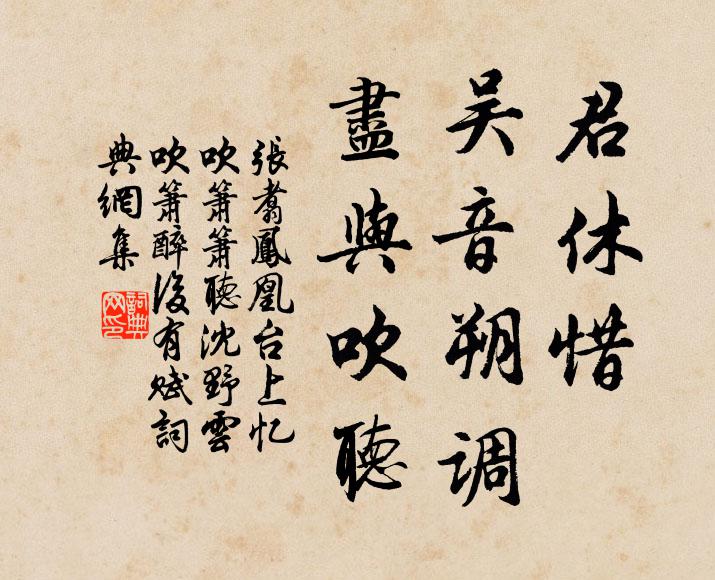 君休惜
吴音朔调
盡與吹聽
張翥鳳凰台上忆
吹簫簫聽沈野雲
吹簫醉後有賦詞
典網集
詞典
网印